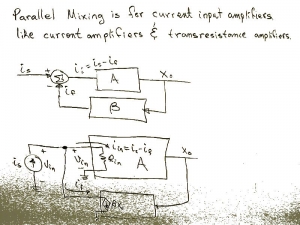 Parallel Mixing is for current input amplifiers
like current amplifiers & transresistance amplifiers.
is + Σ ii = is - if A Xo
- if β
is Vin + - Vin Rin iin = is - if A Xo
if βXo